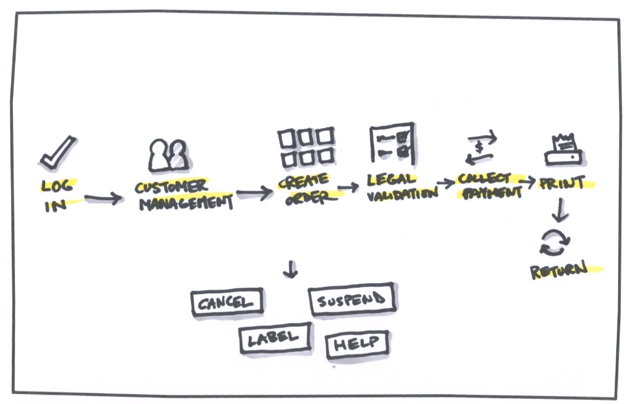 $
LOG
IN
CUSTOMER
MANAGEMENT
CREATE
ORDER
LEGAL
VALIDATION
COLLECT
PAYMENT
PRINT
RETURN
CANCEL
SUSPEND
LABEL
HELP